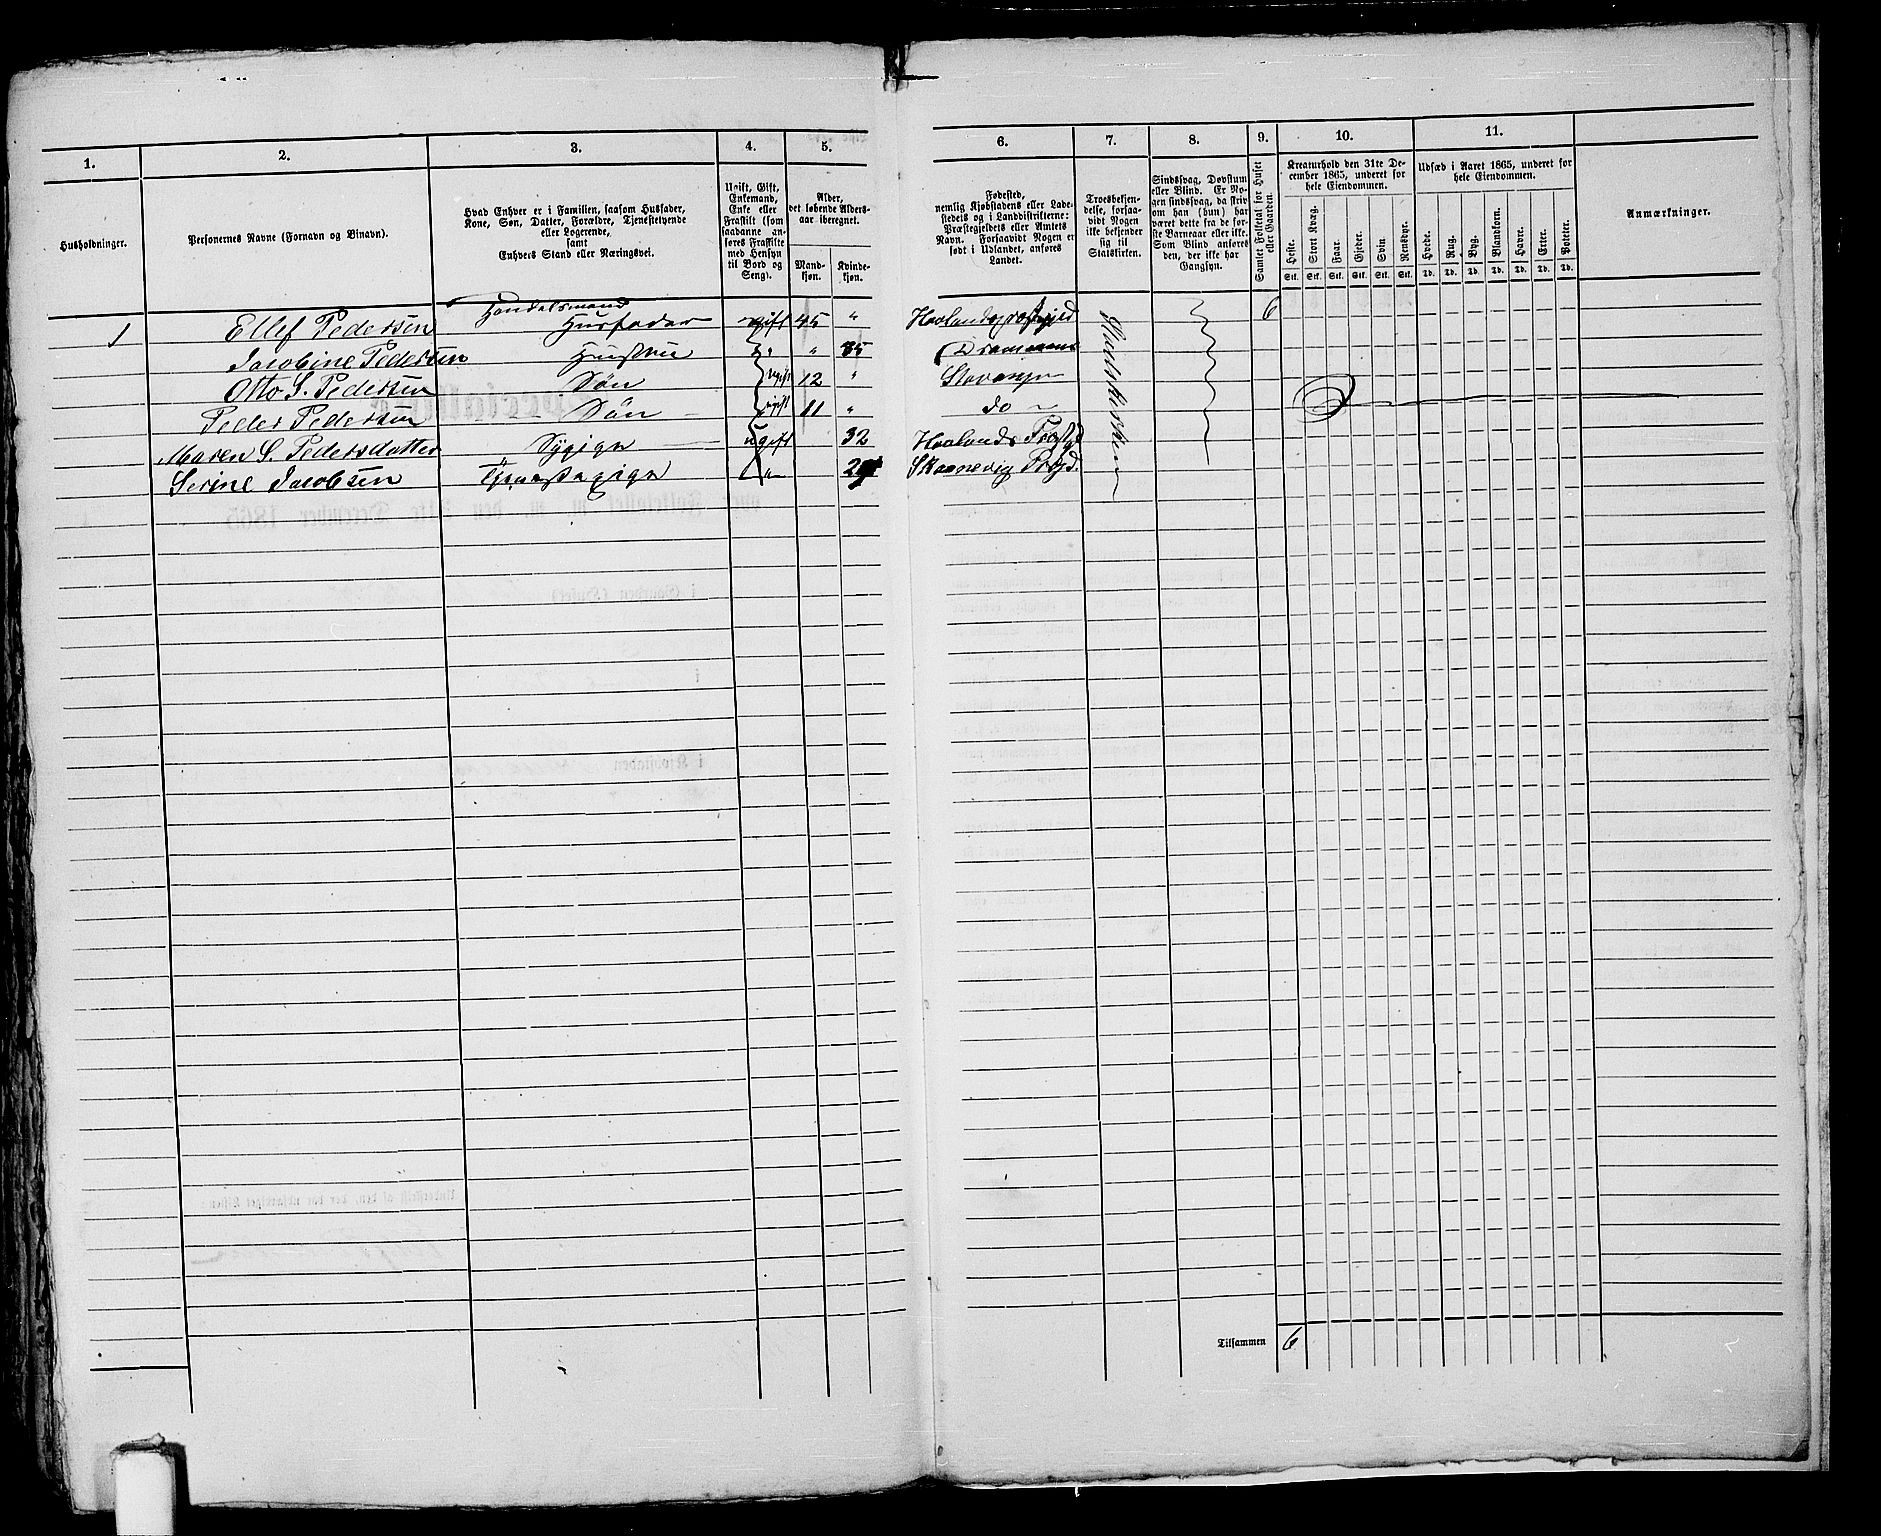 1. 2. 3. 4. 5. 6. 7. 8. 9. 10. 11.
Husholdninger.
Personernes Navne (Fornavn og Binavn).
Hvad Enhver er i Familien, saasom Husfader,
Kone, Søn, Datter, Forældre, Tjenestetyende
eller Logerende,
samt
Enhvers Stand eller Næringsvei.
Ugift, Gift,
Enkemand,
Enke eller
Fraskilt (som
saadanne an-
føres Fraskilte
med Hensyn
til Bord og
Seng).
Alder,
det løbende Alders-
aar iberegnet.
Mand-
kjøn.
Kvinde-
kjøn.
Fødested,
nemlig Kjøbstadens eller Lade-
stedets og i Landdistrikterne:
Præstegjeldets eller Amtets
Navn. Forsaavidt Nogen er
født i Udlandet, anføres
Landet.
Troesbekjen-
delse, forsaa-
vidt Nogen
ikke bekjender
sig til
Statskirken.
Sindssvag, Døvstum
eller Blind. Er No-
gen sindssvag, da skriv
om han (hun) har
været dette fra de for-
ste Barneaar eller ikke.
Som Blind anføres
den, der ikke har
Gangsyn.
Samlet Folketal for Huset
eller Gaarden.
Kreaturhold den 31te De-
cember 1865, underet for
hele Eiendommen.
Heste. Stort Kvæg. Faar. Gjeder. Svin. Rensdyr.
Stk. Stk. Stk. Stk. Stk. Stk.
Udsæd i Aaret 1865, underet for
hele Eiendommen.
Hvede. Rug. Byg. Blandkorn. Havre. Erter. Poteter.
Td. Td. Td. Td. Td. Td. Td.
Anmærkninger.
Handelsmand
1 Ellef Pedersen Husfader gift 45 " 6
Jacobine Pedersen Hustru " " 35 Drammen
Otto S. Pedersen Søn ugift 12 " Stavanger
Peder Pedersen Søn ugift 11 " do
Maren S. Pedersdatter Sypige ugift 32 Haalands
Serine Jacobsen Tjenestepige " Skaanevig
Statskirken
Tilsammen 6